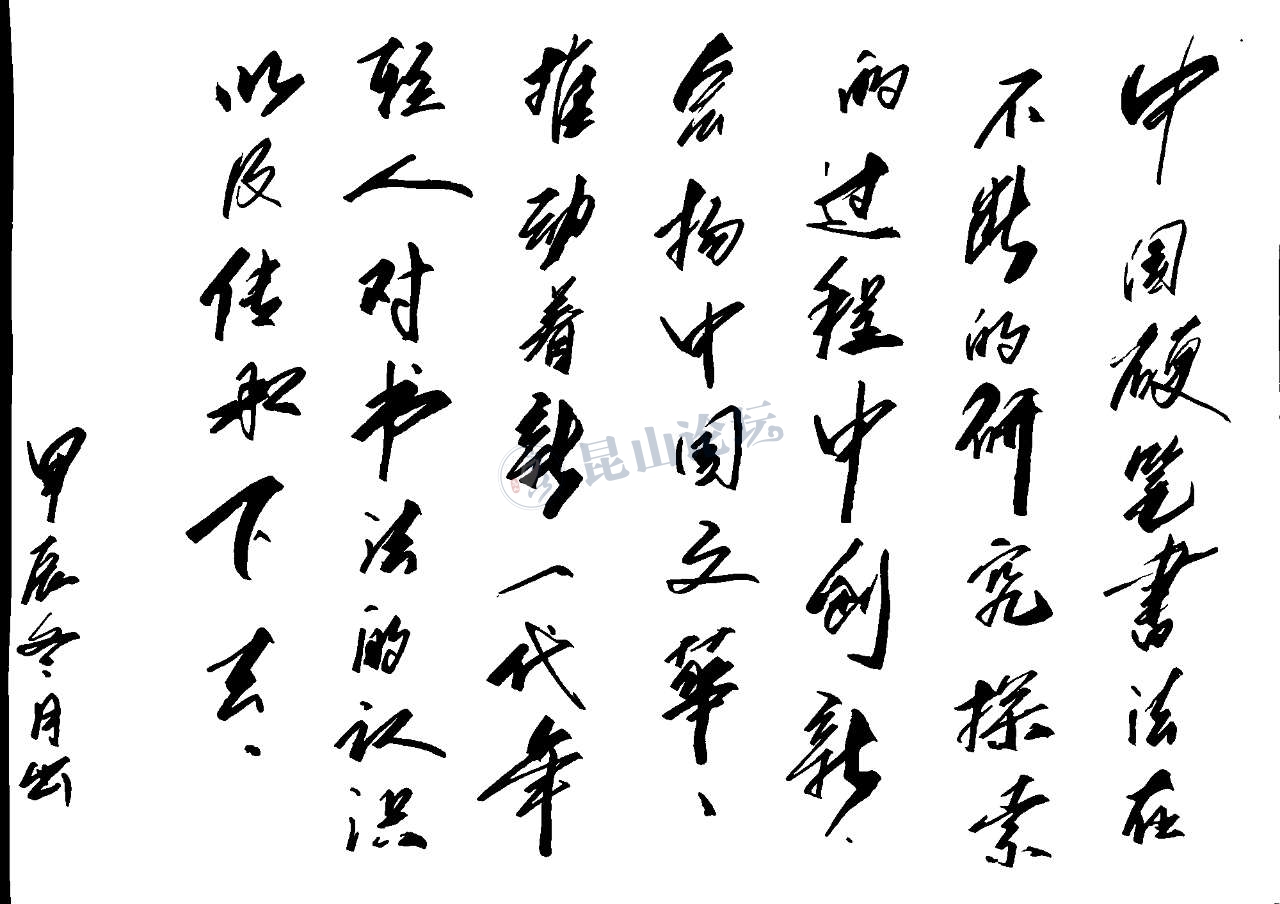 中国硬笔書法在
不断的研究探索
的过程中创新、
会扬中国文華、
推动着新一代年
轻人对书法的认识
以及传承下去、
甲辰冬月
昆山论坛